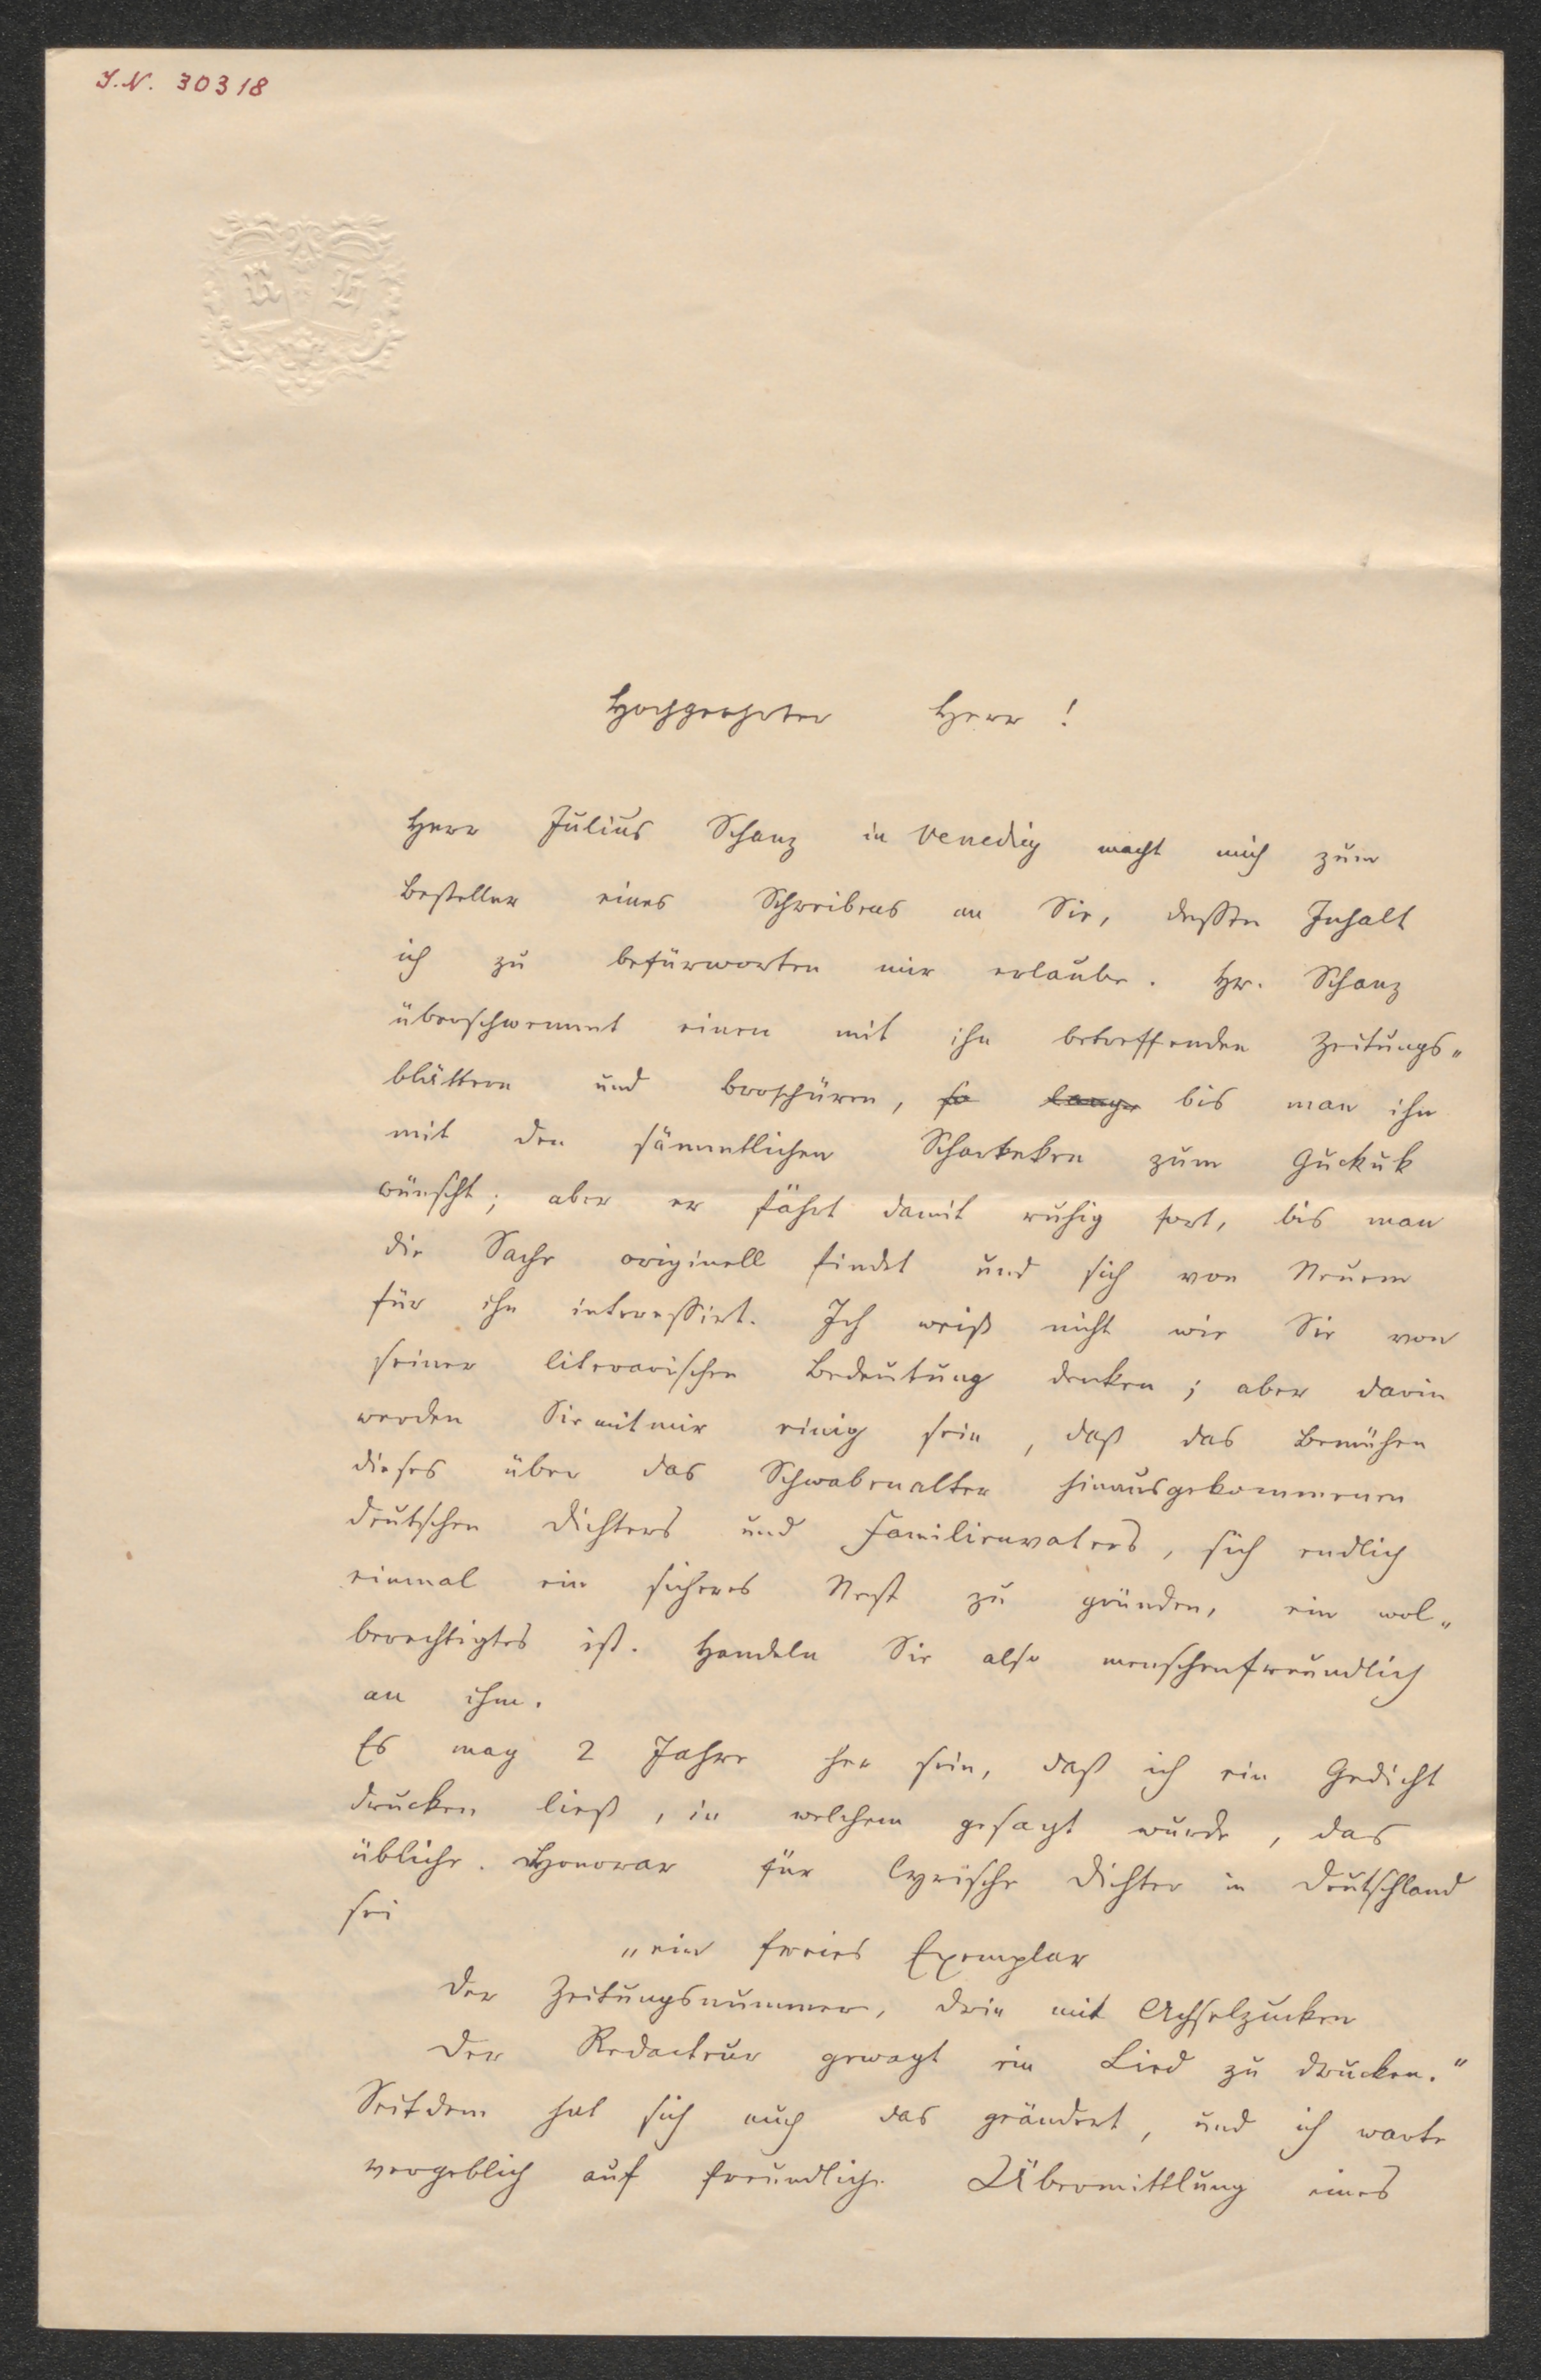 I.N. 30318
R H
Hochgeehrter Herr !
Herr Julius Schanz in Venedig macht mich zum
Besteller eines Schreibens an Sie, dessen Inhalt
ich zu befürworten mir erlaube. Hr. Schanz
überschwemmt einen mit ihn betreffenden Zeitungs„
blättern und Broschüren, so lange bis man ihn
mit den sämmtlichen Scharteken zum Guckuk
wünscht; aber er fährt damit ruhig fort, bis man
die Sache originell findet und sich von Neuem
für ihn interessirt. Ich weiß nicht wie Sie von
seiner literarischen Bedeutung denken; aber darin
werden Sie mit mir einig sein, daß das Bemühen
dieses über das Schwabenalter hinausgekommenen
deutschen Dichters und Familienvaters, sich endlich
einmal ein sicheres Nest zu gründen, ein wol„
berechtigtes ist. Handeln Sie also menschenfreundlich
an ihm.
Es mag 2 Jahre her sein, daß ich ein Gedicht
drucken ließ, in welchem gesagt wurde, das
übliche Honorar für lyrische Dichter in Deutschland
sei
„ein freies Exemplar
Der Zeitungsnummer, drin mit Achselzucken
Der Redacteur gewagt ein Lied zu drucken."
Seitdem hat sich auch das geändert, und ich warte
vergeblich auf freundliche Übermittlung eines